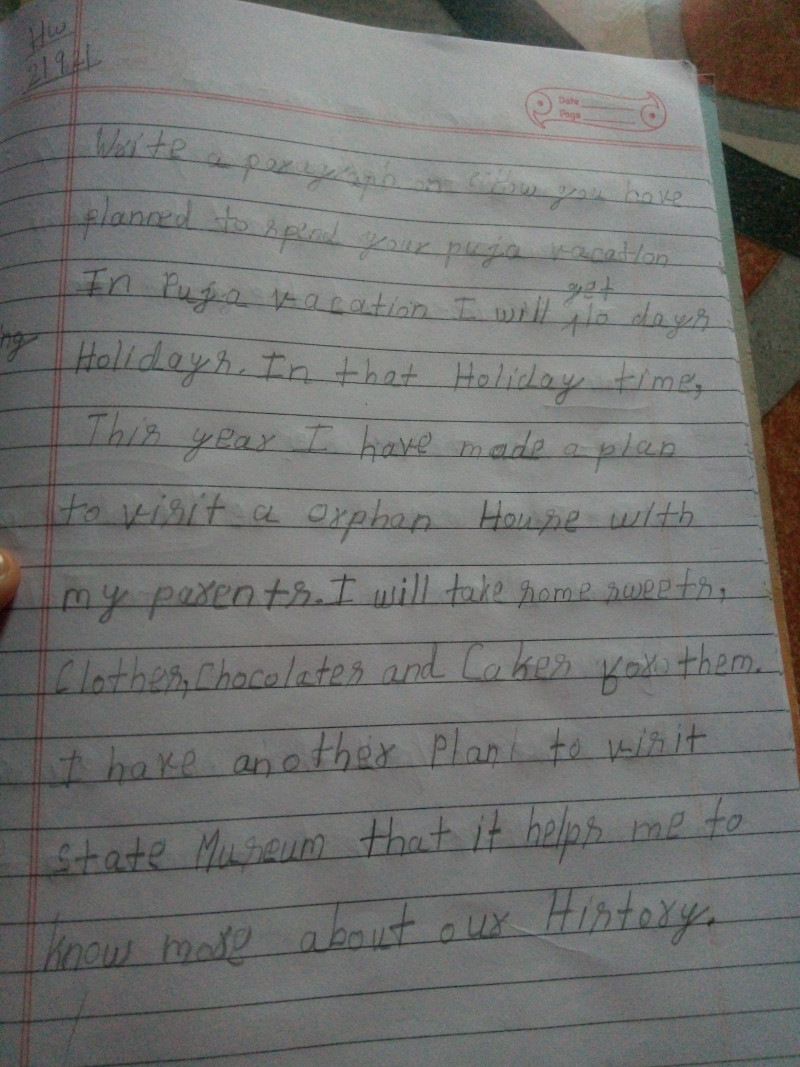 HW
Date
Page
Write a paragraph on How you have
planned to spend your puja vacation
In Puja vacation I will get 10 days
Holidays. In that Holiday time,
This year I have made a plan
to visit a orphan House with
my parents. I will take some sweets,
Clothes, Chocolates and Cakes for them.
I have another Plan to visit
State Museum that it helps me to
know more about our History.